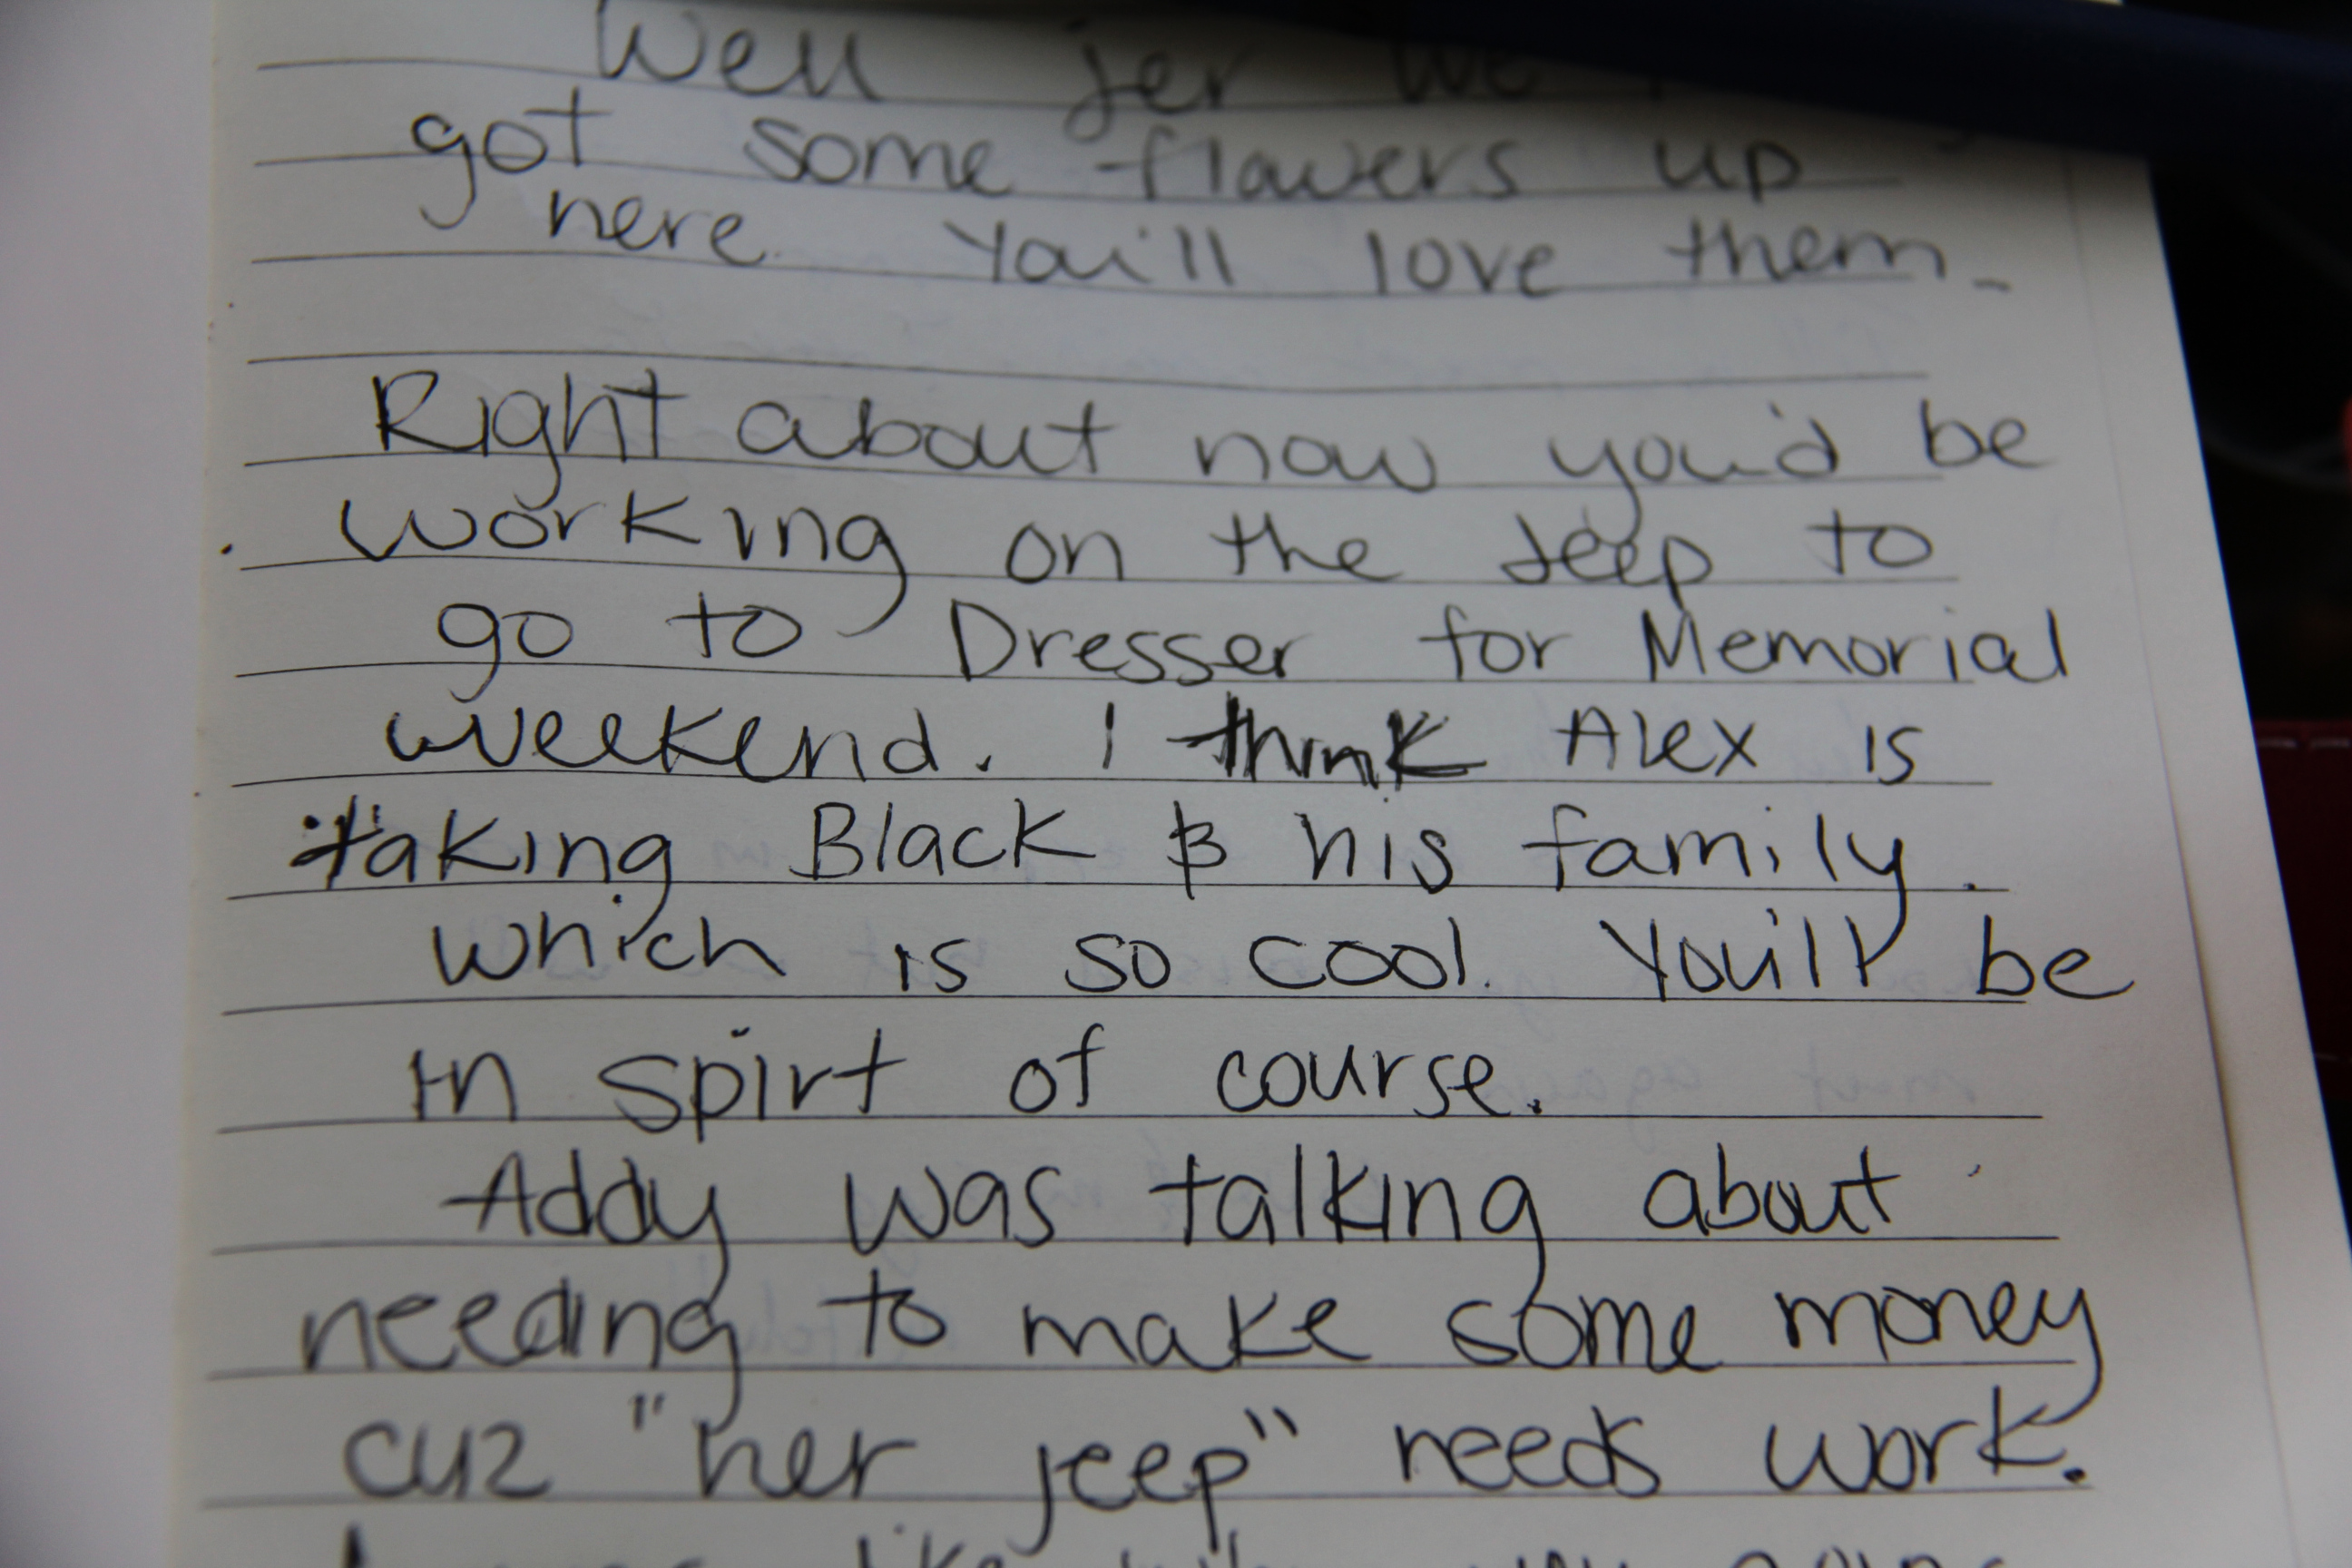 Well jer we
got some flowers up
here. You'll love them.
Right about now you'd be
working on the Jeep to
go to Dresser for Memorial
weekend. I think Alex is
taking Black & his family.
which is so cool. You'll be
in spirt of course.
Addy was talking about
needing to make some money
cuz "her jeep" needs work.